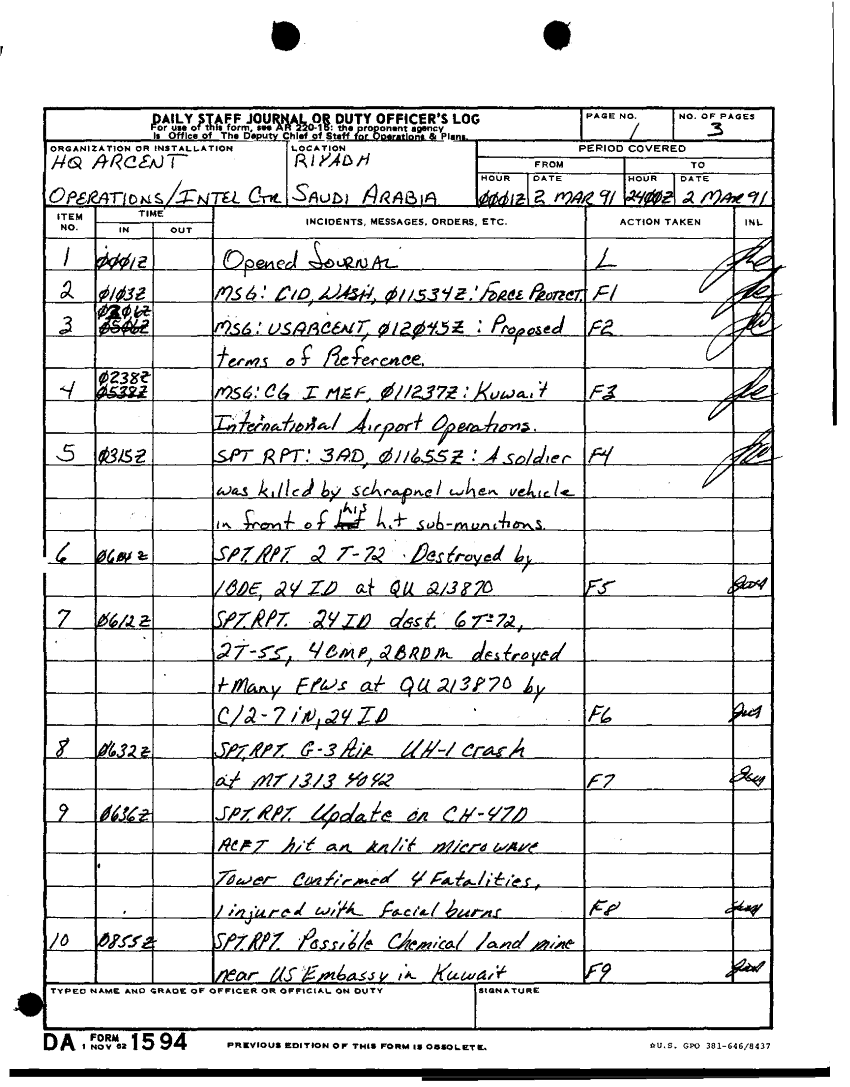 DAILY STAFF JOURNAL OR DUTY OFFICER'S LOG
For use of this form, see AR 220-15; the proponent agency
is Office of The Deputy Chief of Staff for Operations & Plans.
PAGE NO.
1
NO. OF PAGES
3
ORGANIZATION OR INSTALLATION
HQ ARCENT
OPERATIONS/INTEL CTR
LOCATION
RIYADH
SAUDI ARABIA
PERIOD COVERED
FROM TO
HOUR DATE HOUR DATE
0001Z 2 MAR 91 2400Z 2 MAR 91
ITEM NO. TIME IN OUT INCIDENTS, MESSAGES, ORDERS, ETC. ACTION TAKEN INL
1 0001Z Opened JOURNAL L
2 0103Z MSG: CID, WASH, 011534Z: FORCE PROTECT. F1
0206Z
3 0506Z MSG: USARCENT, 012045Z: Proposed F2
terms of Reference.
0238Z
4 0538Z MSG: CG I MEF, 011237Z: Kuwait F3
International Airport Operations.
5 0315Z SPT RPT: 3AD, 011655Z: A soldier F4
was killed by schrapnel when vehicle
in front of his hit sub-munitions.
6 SPT. RPT. 2 T-72 Destroyed by
1BDE, 24 ID at QU 213870 F5
7 0612Z SPT. RPT. 24 ID dest. 6 T-72,
2T-55, 4 BMP, 2 BRDM destroyed
+ Many EPWs at QU 213870 by
C/2-7 iN, 24 ID F6
8 0632Z SPT. RPT. G-3 Air UH-1 crash
at MT 1313 4042 F7
9 0636Z SPT. RPT. Update on CH-47D
ACFT hit an unlit microwave
Tower Confirmed 4 Fatalities,
1 injured with facial burns F8
10 0855Z SPT. RPT. Possible Chemical land mine
near US Embassy in Kuwait F9
TYPED NAME AND GRADE OF OFFICER OR OFFICIAL ON DUTY SIGNATURE
DA FORM 1 NOV 62 1594 PREVIOUS EDITION OF THIS FORM IS OBSOLETE. ☆U.S. GPO 381-646/8437